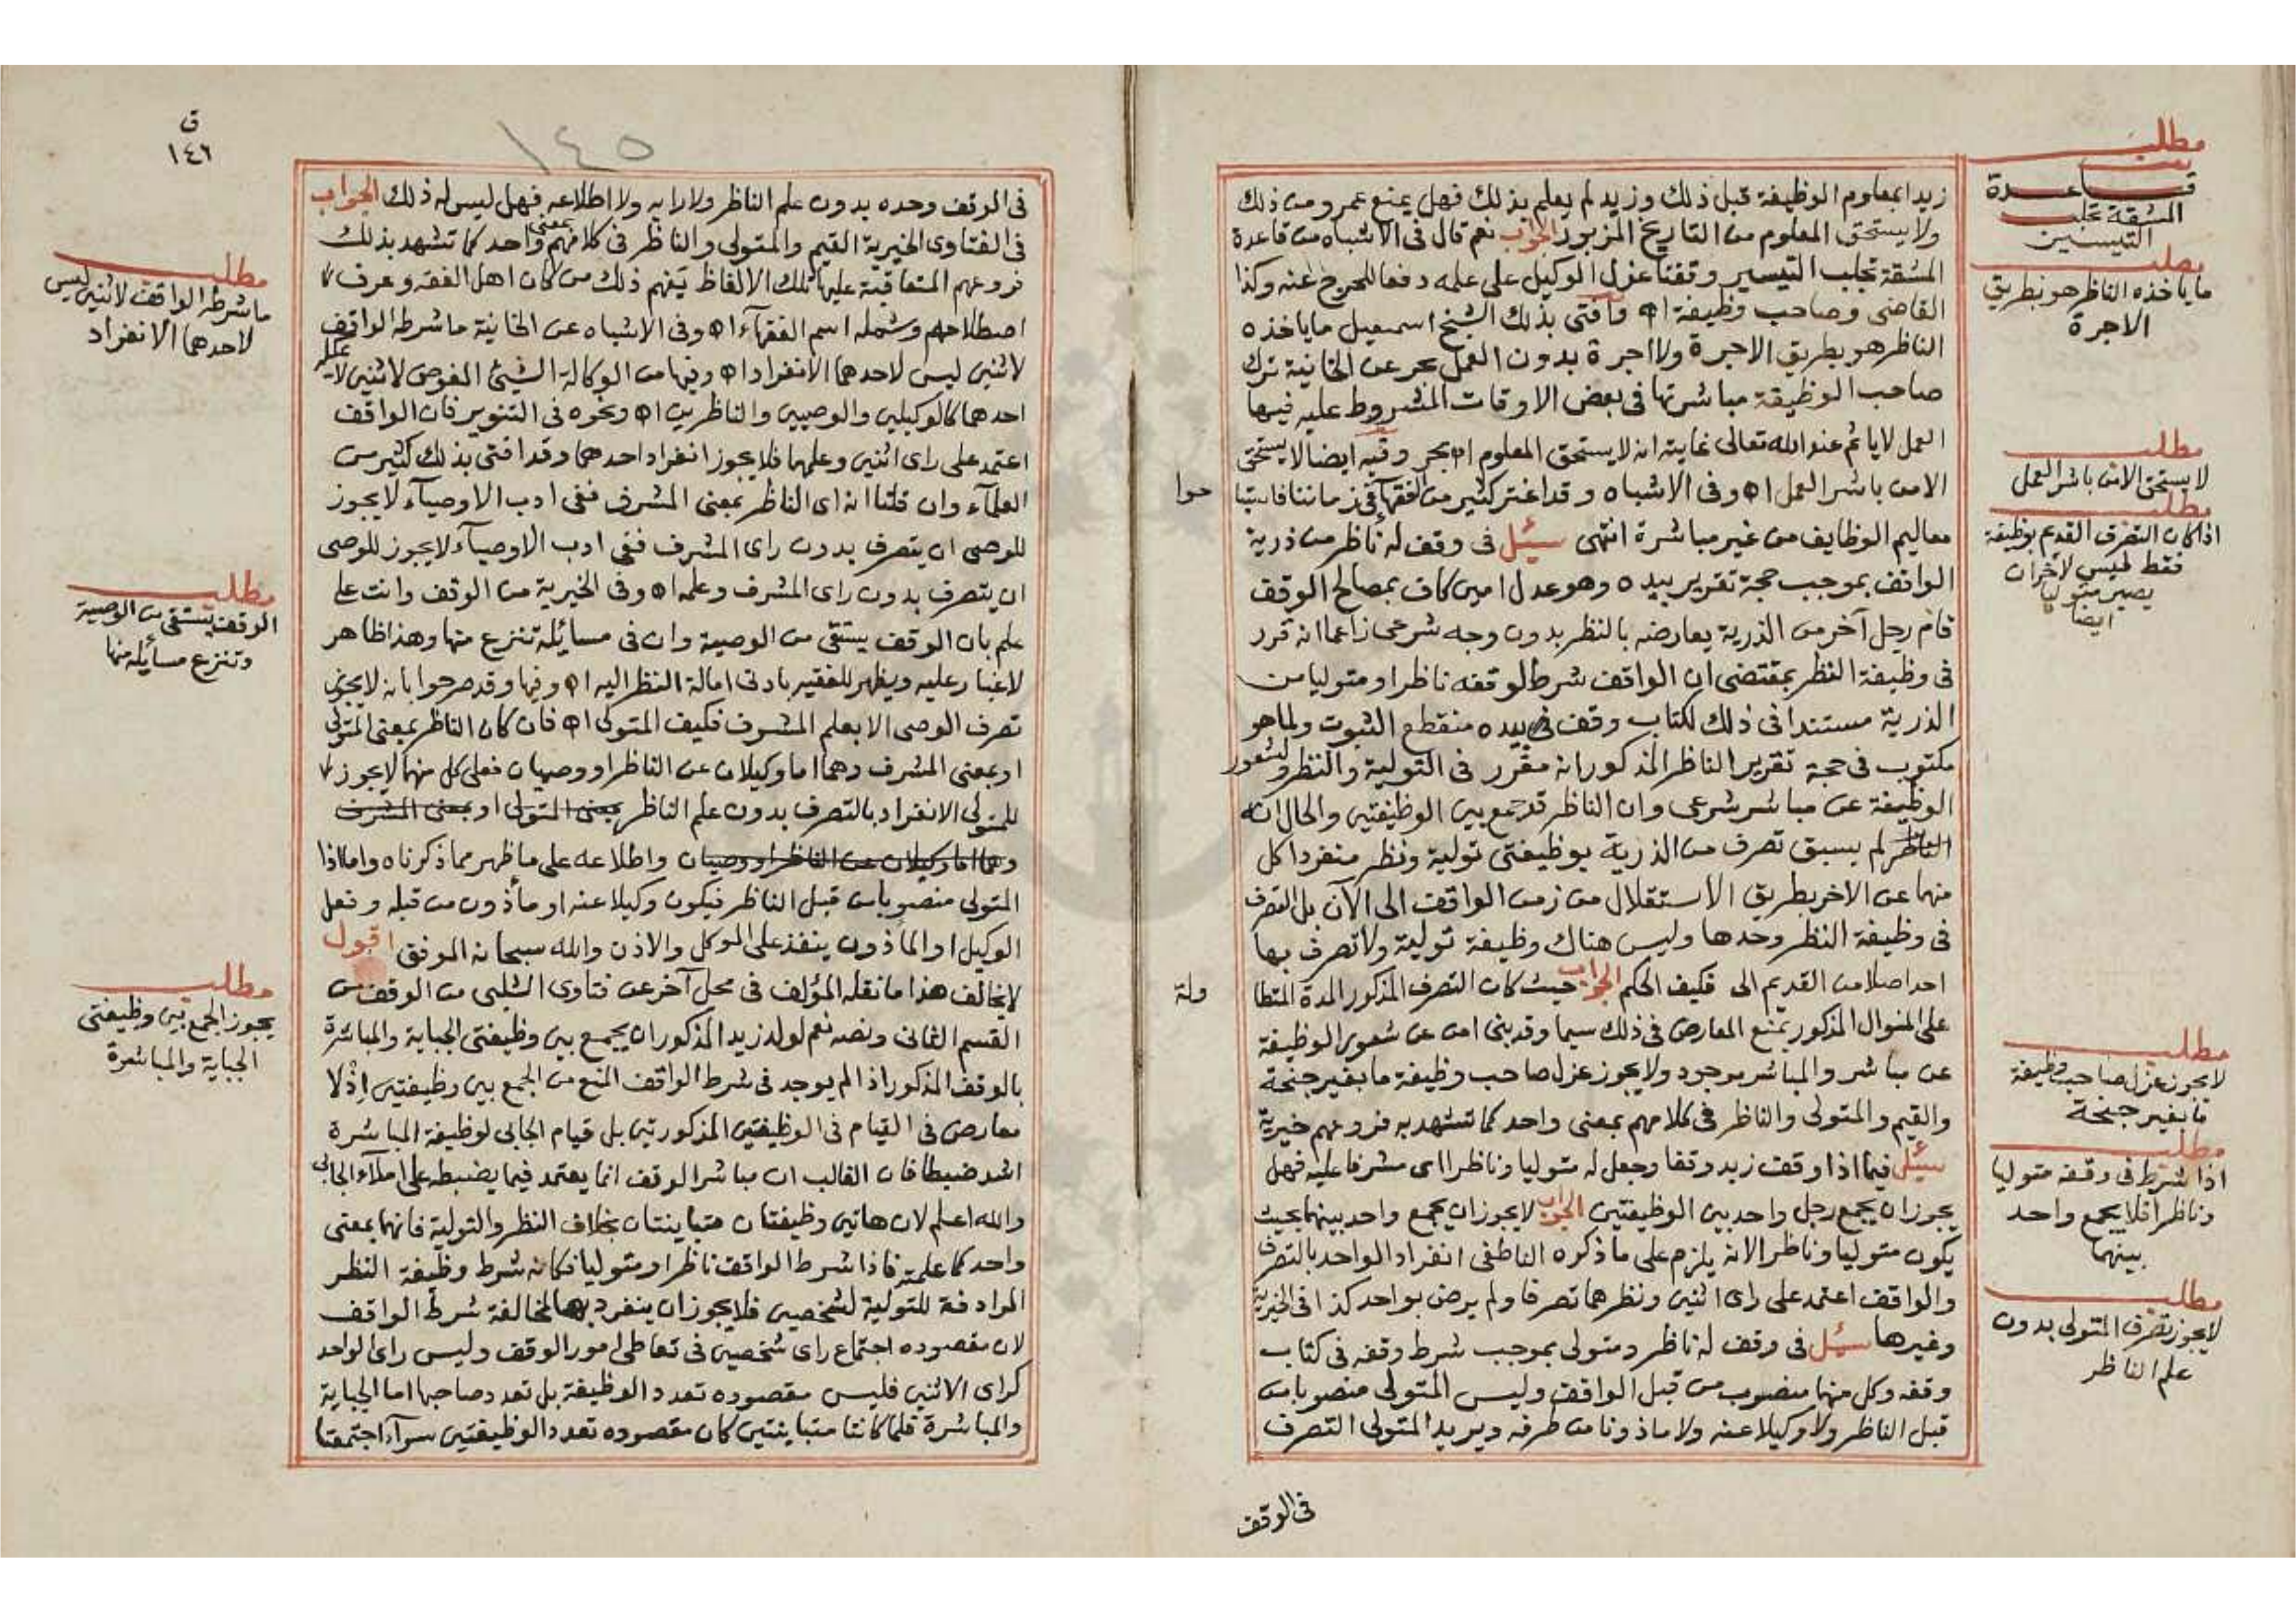 زيدا بمعلوم الوظيفة قبل ذلك وزيد لم يعلم بذلك فهل يمنع عمرو من ذلك
ولا يستحق المعلوم من التاريخ المزبور الجواب نعم قال فى الاشباه من قاعدة
المشقة تجلب التيسير وقفنا عزل الوكيل على علمه دفعا للحرج عنه وكذا
القاضى وصاحب وظيفة اه وافتى بذلك الشيخ اسمعيل ما ياخذه
الناظر هو بطريق الاجرة ولا اجرة بدون العمل بحر عن الخانية ترك
صاحب الوظيفة مباشرتها فى بعض الاوقات المشروط عليه فيها
العمل لا ياثم عند الله تعالى غايته انه لا يستحق المعلوم اه بحر وفيه ايضا لا يستحق
الا من باشر العمل اه وفى الاشباه وقد اغتر كثير من الفقهآء فى زماننا فاستبا
حوا
معاليم الوظايف من غير مباشرة انتهى سئل فى وقف له ناظر من ذرية
الواقف بموجب حجة تقرير بيده وهو عدل امين كاف بمصالح الوقف
قام رجل آخر من الذرية يعارضه بالنظر بدون وجه شرعى زاعما انه قرر
فى وظيفة النظر بمقتضى ان الواقف شرط لوقفه ناظرا ومتوليا من
الذرية مستندا فى ذلك لكتاب وقف فى بيده منقطع الثبوت ولما هو
مكتوب فى حجة تقرير الناظر المذكور انه مقرر فى التولية والنظر ولشغور
الوظيفة عن مباشر شرعى وان الناظر قد جمع بين الوظيفتين والحال انه
الناظر لم يسبق تصرف من الذرية بوظيفتى تولية ونظر منفردا كل
منهما عن الاخر بطريق الاستقلال من زمن الواقف الى الآن بل التصرف
فى وظيفة النظر وحدها وليس هناك وظيفة تولية ولا تصرف بها
احد اصلا من القديم الى فكيف الحكم الجواب حيث كان التصرف المذكور المدة المتطا
ولة
على المنوال المذكور يمنع المعارض فى ذلك سيما وقد بنى امن عن شغور الوظيفة
عن مباشر والمباشر موجود ولا يجوز عزل صاحب وظيفة ما بغير جنحة
والقيم والمتولى والناظر فى كلامهم بمعنى واحد كما تشهد به فروعهم خيرية
سئل فيما اذا وقف زيد وقفا وجعل له متوليا وناظرا اى مشرفا عليه فهل
يجوز ان يجمع رجل واحد بين الوظيفتين الجواب لا يجوز ان يجمع واحد بينهما بحيث
يكون متوليا وناظرا لانه يلزم على ما ذكره الناطفى انفراد الواحد بالتصرف
والواقف اعتمد على راى اثنين ونظرهما تصرفا ولم يرض بواحد كذا فى الخيرية
وغيرها سئل فى وقف له ناظر ومتولى بموجب شرط وقفه فى كتاب
وقفه وكل منهما منصوب من قبل الواقف وليس المتولى منصوبا من
قبل الناظر ولا وكيلا عنه ولا ماذونا من طرفه ويريد المتولى التصرف
فى الوقف
مطلب
قاعدة
المشقة تجلب
التيسير
مطلب
ما ياخذه الناظر هو بطريق
الاجرة
مطلب
لا يستحق الا من باشر العمل
مطلب
اذا كان التصرف القديم بوظيفة
فقط ليس لآخر ان
يصير متوليا
ايضا
مطلب
لا يجوز عزل صاحب وظيفة
ما بغير جنحة
مطلب
اذا شرط فى وقفه متوليا
وناظرا فلا يجمع واحد
بينهما
مطلب
لا يجوز تصرف المتولى بدون
علم الناظر
ق
١٤٦
١٤٥
فى الوقف وحده بدون علم الناظر ولا رايه ولا اطلاعه فهل ليس له ذلك الجواب
فى الفتاوى الخيرية القيم والمتولى والناظر فى كلامهم بمعنى واحد كما تشهد بذلك
فروعهم المتعاقبة عليها تلك الالفاظ يفهم ذلك من كان اهل الفقه وعرف
اصطلاحهم وشمله اسم الفقهآء اه وفى الاشباه عن الخانية ما شرطه الواقف
لاثنين ليس لاحدهما الانفراد اه وفيها من الوكالة الشيئ المفوض لاثنين لا يملكه
احدهما كالوكيلين والوصيين والناظرين اه ونحوه فى التنوير فان الواقف
اعتمد على راى اثنين وعلمهما فلا يجوز انفراد احدهما وقد افتى بذلك كثير من
العلمآء وان قلنا انه اى الناظر بمعنى المشرف ففى ادب الاوصيآء لا يجوز
للوصى ان يتصرف بدون راى المشرف ففى ادب الاوصيآء لا يجوز للوصى
ان يتصرف بدون راى المشرف وعلمه اه وفى الخيرية من الوقف وانت على
علم بان الوقف يستقى من الوصية وان فى مسائله تنزع منها وهذا ظاهر
لا غبار عليه ويظهر للفقير بادنى امالة النظر اليه اه وفيها وقد صرحوا بانه لا يجوز
تصرف الوصى الا بعلم المشرف فكيف المتولى اه فان كان الناظر بمعنى المتولى
او بمعنى المشرف وهما اما وكيلان عن الناظر او وصيان فعلى كل منهما لا يجوز
للمتولى الانفراد بالتصرف بدون علم الناظر بمعنى المتولى او بمعنى المشرف
وهما اما وكيلان عن الناظر او وصيان واطلاعه على ما ظهر مما ذكرناه واما اذا
المتولى منصوبا من قبل الناظر فيكون وكيلا عنه او مأذون من قبله وفعل
الوكيل او المأذون ينفذ على الموكل والاذن والله سبحانه الموفق اقول
لا يخالف هذا ما نقله المؤلف فى محل آخر عن فتاوى الشلبى من الوقف من
القسم الثانى ونصه نعم لولد زيد المذكور ان يجمع بين وظيفتى الجباية والمباشرة
بالوقف المذكور اذا لم يوجد فى شرط الواقف المنع من الجمع بين وظيفتين اذ لا
معارض فى القيام فى الوظيفتين المذكورتين بل قيام الجابى لوظيفة المباشرة
اشد ضبطا فان الغالب ان مباشر الوقف انما يعتمد فيما يضبطه على املآء الجابى
والله اعلم لان هاتين وظيفتان متباينتان بخلاف النظر والتولية فانهما بمعنى
واحد كما علمته فاذا شرط الواقف ناظرا ومتوليا فكانه شرط وظيفة النظر
المرادفة للتولية لشخصين فلا يجوز ان ينفرد بهما لمخالفة شرط الواقف
لان مقصوده اجتماع راى شخصين فى تعاطى امور الوقف وليس راى الواحد
كراى الاثنين فليس مقصوده تعدد الوظيفة بل تعدد صاحبها اما الجباية
والمباشرة فلما كانتا متباينتين كان مقصوده تعدد الوظيفتين سوآء اجتمعتا
مطلب
ما شرطه الواقف لاثنين ليس
لاحدهما الانفراد
مطلب
الوقف يستقى من الوصية
وتنزع مسائله منها
مطلب
يجوز الجمع بين وظيفتى
الجباية والمباشرة